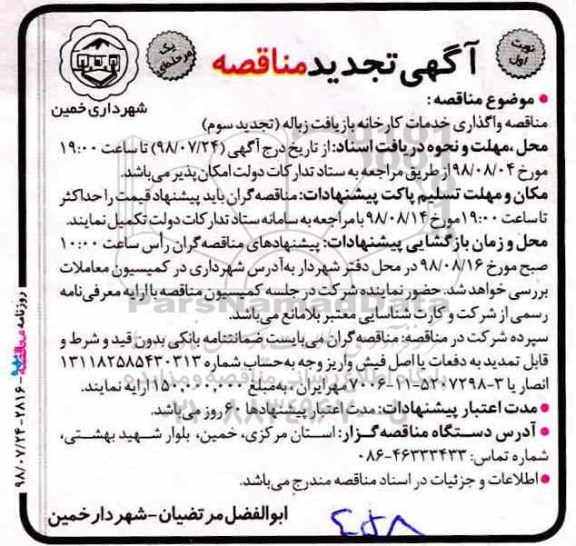 نوبت اول
آگهی تجدید مناقصه
یک مرحله‌ای
شهرداری خمین
• موضوع مناقصه :
مناقصه واگذاری خدمات کارخانه بازیافت زباله (تجدید سوم)
محل ،مهلت و نحوه دریافت اسناد: از تاریخ درج آگهی (۹۸/۰۷/۲۴) تا ساعت ۱۹:۰۰
مورخ ۹۸/۰۸/۰۴ از طریق مراجعه به ستاد تدارکات دولت امکان پذیر می‌باشد.
مکان و مهلت تسلیم پاکت پیشنهادات: مناقصه گران باید پیشنهاد قیمت را حداکثر
تا ساعت ۱۹:۰۰ مورخ ۹۸/۰۸/۱۴ با مراجعه به سامانه ستاد تدارکات دولت تکمیل نمایند.
محل و زمان بازگشایی پیشنهادات: پیشنهادهای مناقصه گران رأس ساعت ۱۰:۰۰
صبح مورخ ۹۸/۰۸/۱۶ در محل دفتر شهردار به آدرس شهرداری در کمیسیون معاملات
بررسی خواهد شد. حضور نماینده شرکت در جلسه کمیسیون مناقصه با ارایه معرفی نامه
رسمی از شرکت و کارت شناسایی معتبر بلامانع می‌باشد.
سپرده شرکت در مناقصه: مناقصه گران می‌بایست ضمانتنامه بانکی بدون قید و شرط و
قابل تمدید به دفعات یا اصل فیش واریز وجه به حساب شماره ۱۳۱۱۸۲۵۸۵۴۳۰۳۱۳
انصار یا ۳-۵۲۰۷۲۹۸-۱۱-۷۰۰۶ مهر ایران، به مبلغ ۱۵۰،۰۰۰،۰۰۰ ارایه نمایند.
• مدت اعتبار پیشنهادات: مدت اعتبار پیشنهادها ۶۰ روز می‌باشد.
• آدرس دستگاه مناقصه گزار: استان مرکزی، خمین، بلوار شهید بهشتی،
شماره تماس: ۴۶۳۳۳۴۳۳-۰۸۶
• اطلاعات و جزئیات در اسناد مناقصه مندرج می‌باشد.
ابوالفضل مرتضیان – شهردار خمین
روزنامه مناقصه - ۲۸۱۶ - ۹۸/۰۷/۲۴
ParsNamadData